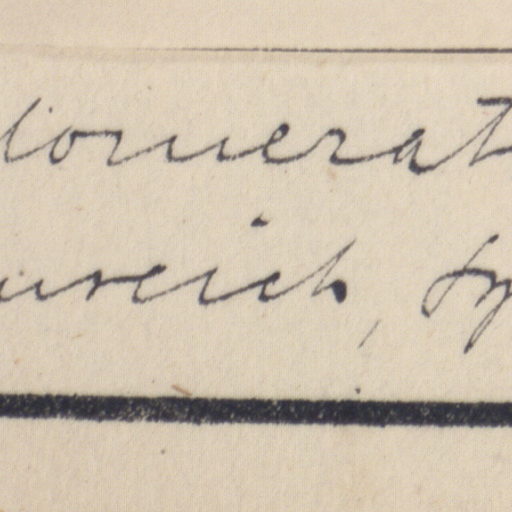 lomerat
ureich, Sy